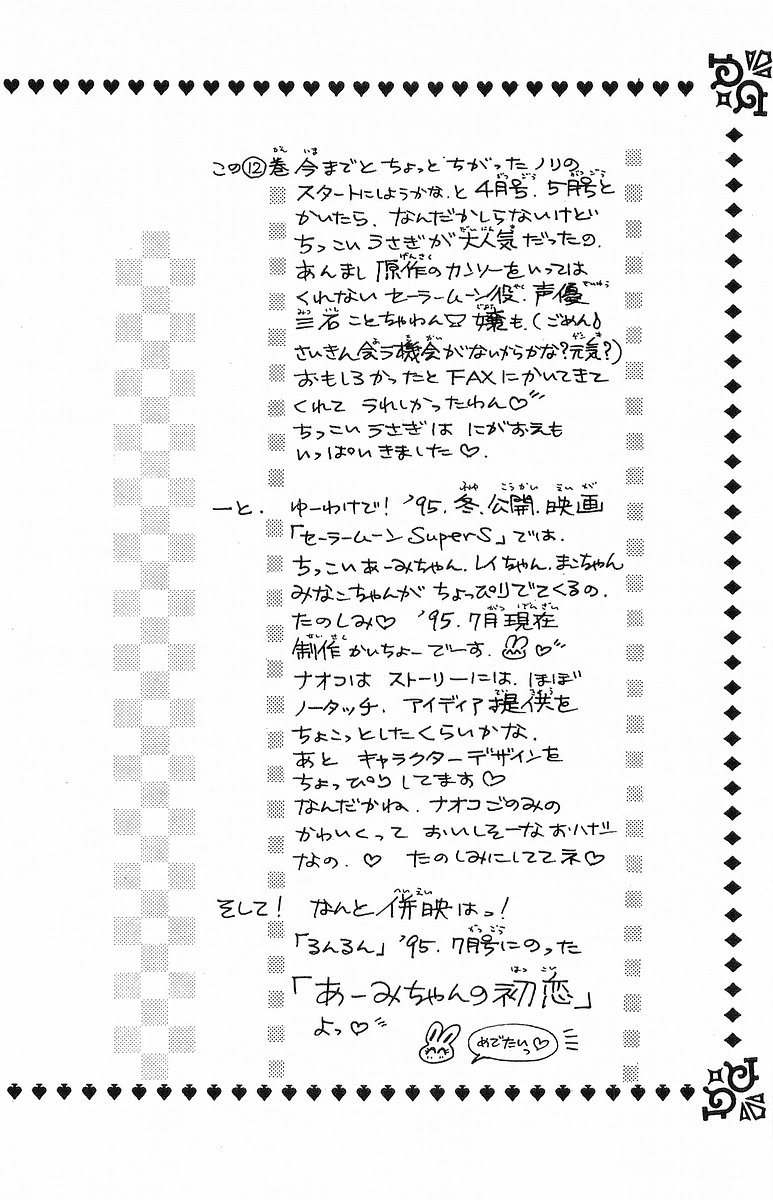 この⑫巻 今までと ちょっと ちがった ノリの
スタートにしようかな、と 4月号、5月号と
かいたら、なんだかしらないけど
ちっこいうさぎが 大人気だったの。
あんまし 原作のカンソーをいっては
くれない セーラームーン役、声優
三石 ことちゃわん♡ 嬢も、(ごめん
さいきん会う機会がないからかな?元気?)
おもしろかったと FAXにかいてきて
くれて うれしかったわん♡
ちっこいうさぎは にがおえも
いっぱいきました♡。
ーと、ゆーわけで! '95.冬、公開、映画
「セーラームーン SuperS」では、
ちっこいあーみちゃん、レイちゃん、まこちゃん
みなこちゃんが ちょっぴりでてくるの。
たのしみ♡ '95.7月現在
制作かいちょーでーす。♡
ナオコは ストーリーには、ほぼ
ノータッチ、アイディア提供を
ちょこっとしたくらいかな、
あと キャラクターデザインを
ちょっぴり してます♡
なんだかね、ナオコごのみの
かわいくって おいしそーな おハナシ
なの。♡ たのしみにしててネ♡
そして! なんと 併映はっ!
「るんるん」'95.7月号にのった
「あーみちゃんの初恋」
よっ♡
めでたいっ♡